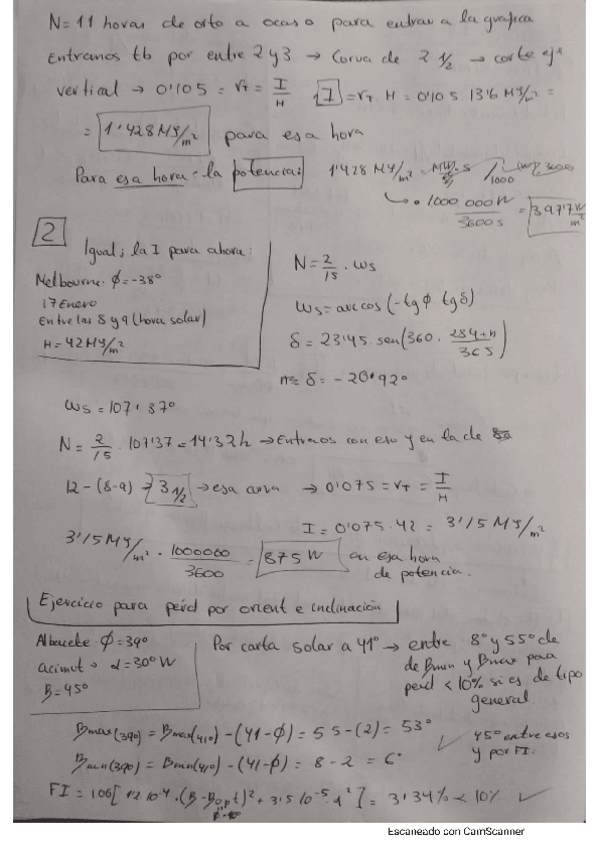 N=11 horas de orto a ocaso para entrar a la grafica
Entramos tb por entre 2 y 3 → Curva de 2 1/2 → corte eje
vertical → 0'105 = rT = I/H   I = rT · H = 0'105 · 13'6 MJ/m² =
= 1'428 MJ/m² para esa hora
Para esa hora la potencia: 1'428 MJ/m²
1000 000 W / 3600 s = 397'7 W/m²
2 Igual; la I para ahora:
Melbourne φ=-38º
17 Enero
Entre las 8 y 9 (hora solar)
H = 42 MJ/m²
N = 2/15 · ws
ws = arccos (-tg φ · tg δ)
δ = 23'45 · sen(360 · 284+n/365)
δ = -20'92º
ws = 107'37º
N = 2/15 · 107'37 = 14'32 h → Entramos con eso y en la de
12 - (8-9) = 3 1/2 → esa curva → 0'075 = rT = I/H
I = 0'075 · 42 = 3'15 MJ/m²
3'15 MJ/m² · 1000000/3600 = 875 W en esa hora
de potencia.
Ejercicio para perd por orient e inclinación
Albacete φ=39º
acimut → α=30º W
B=45º
Por carta solar a 41º → entre 8º y 55º de
de Bmin y Bmax para
perd < 10% si es de tipo
general.
Bmax(39º) = Bmax(41º) - (41-φ) = 55 - (2) = 53º
Bmin(39º) = Bmin(41º) - (41-φ) = 8 - 2 = 6º
✓ 45º entre esos
y por FI.
FI = 100[1'2·10⁻⁴ · (B-Bopt)² + 3'5·10⁻⁵ · α²] = 3'34% < 10% ✓
Escaneado con CamScanner